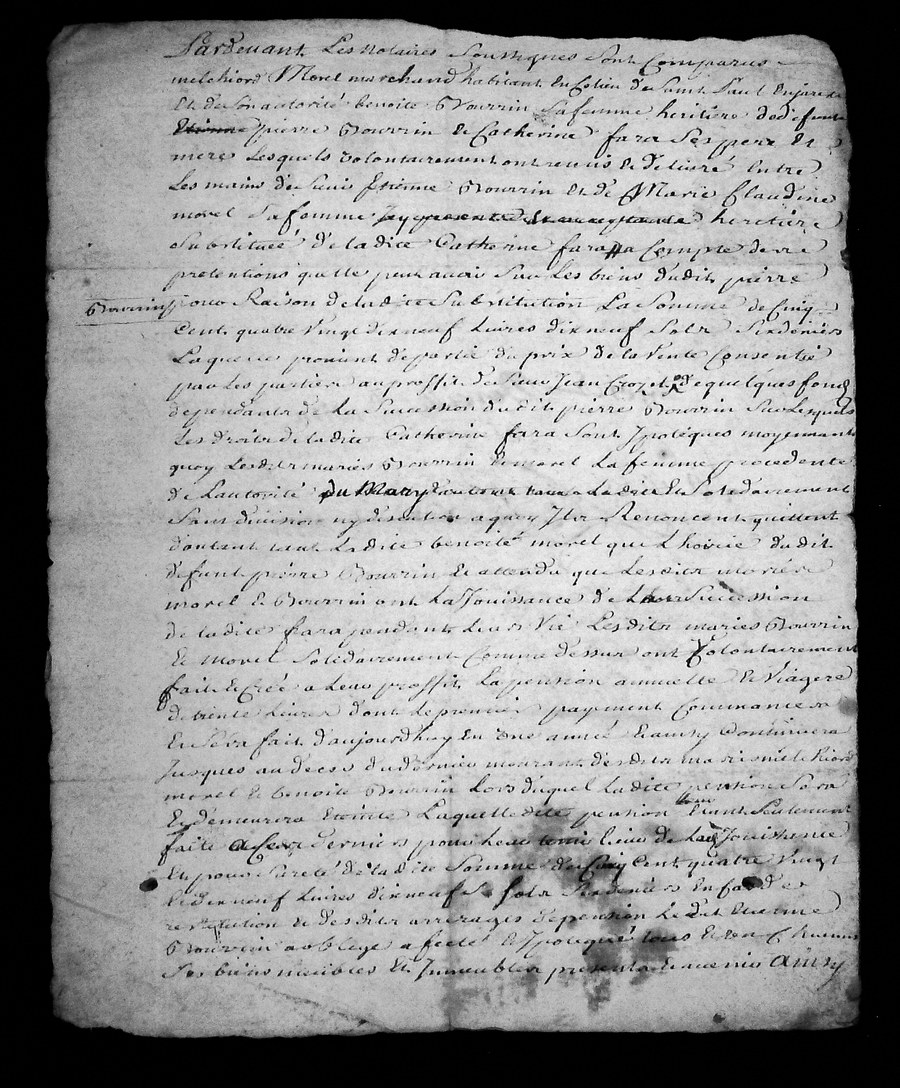 Pardevant Les Notaires Soussignes Sont Comparus
melchiord Morel marchand habitant En Ce lieu de Saint Paul En jarest
Et de Son autorité benoite Bourrin Sa femme heritiere de defunts
Etienne pierre Bourrin Et Catherine fara Ses pere Et
mere Lesquels volontairement ont remis Et delivré Entre
Les mains de Sieur Etienne Bourrin Et de Marie Claudine
morel Sa femme Icy presente Et acceptante heritiere
Substituée de ladite Catherine fara a Compte de
pretentions quelle peut avoir Sur Les biens dudit pierre
Bourrin pour Raison de ladite Substitution La Somme de Cinq
Cent quatre vingt dixneuf Livres dixneuf Sols Six deniers
Laquelle provient de partie du prix de la Vente Consentie
par Les parties au proffit de Sieur Jean Crozet de quelques fonds
dependants de La Succession dudit pierre Bourrin Sur Lesquels
Les droits de ladite Catherine fara Sont Ypoteques moyennant
quoy Lesdits mariés Bourrin Et morel La femme procedente
de Lautorité du Mary Ladite Et Solidairement
Sans division ny discution a quoy Ils Renoncent quittent
dautant tant Ladite benoite morel que Lhoirie dudit
defunt pierre Bourrin Et attendu que Lesdits mariés
morel Et Bourrin ont La Jouissance de La Succession
de ladite fara pendant Leur Vie Lesdits mariés Bourrin
Et Morel Solidairement Comme dessus ont Volontairement
fait Et Créé a Leur proffit La pension annuelle Et Viagere
de trente Livres dont Le premier payment Commancera
Et Sera fait daujourdhuy En une année Et ainsy Continuera
Jusques au deces du dernier mourant desdits mariés melchiord
morel Et benoite Bourrin Lors duquel Ladite pension Sera
Et demeurera Eteinte Laquelle dite pension Seulement
faite a Ces derniers pour Leur tenir Lieu de La Jouissance
Et pour Sureté de ladite Somme de Cinq Cent quatre Vingt
Et dixneuf Livres dixneuf Sols Six deniers En fonds
restitution Et desdits arrerages de pension Ledit Etienne
Bourrin a oblige afecté Et Ypotequé tous Et un Chacuns
Ses biens meubles Et Immeubles presents Et avenir Ainsy